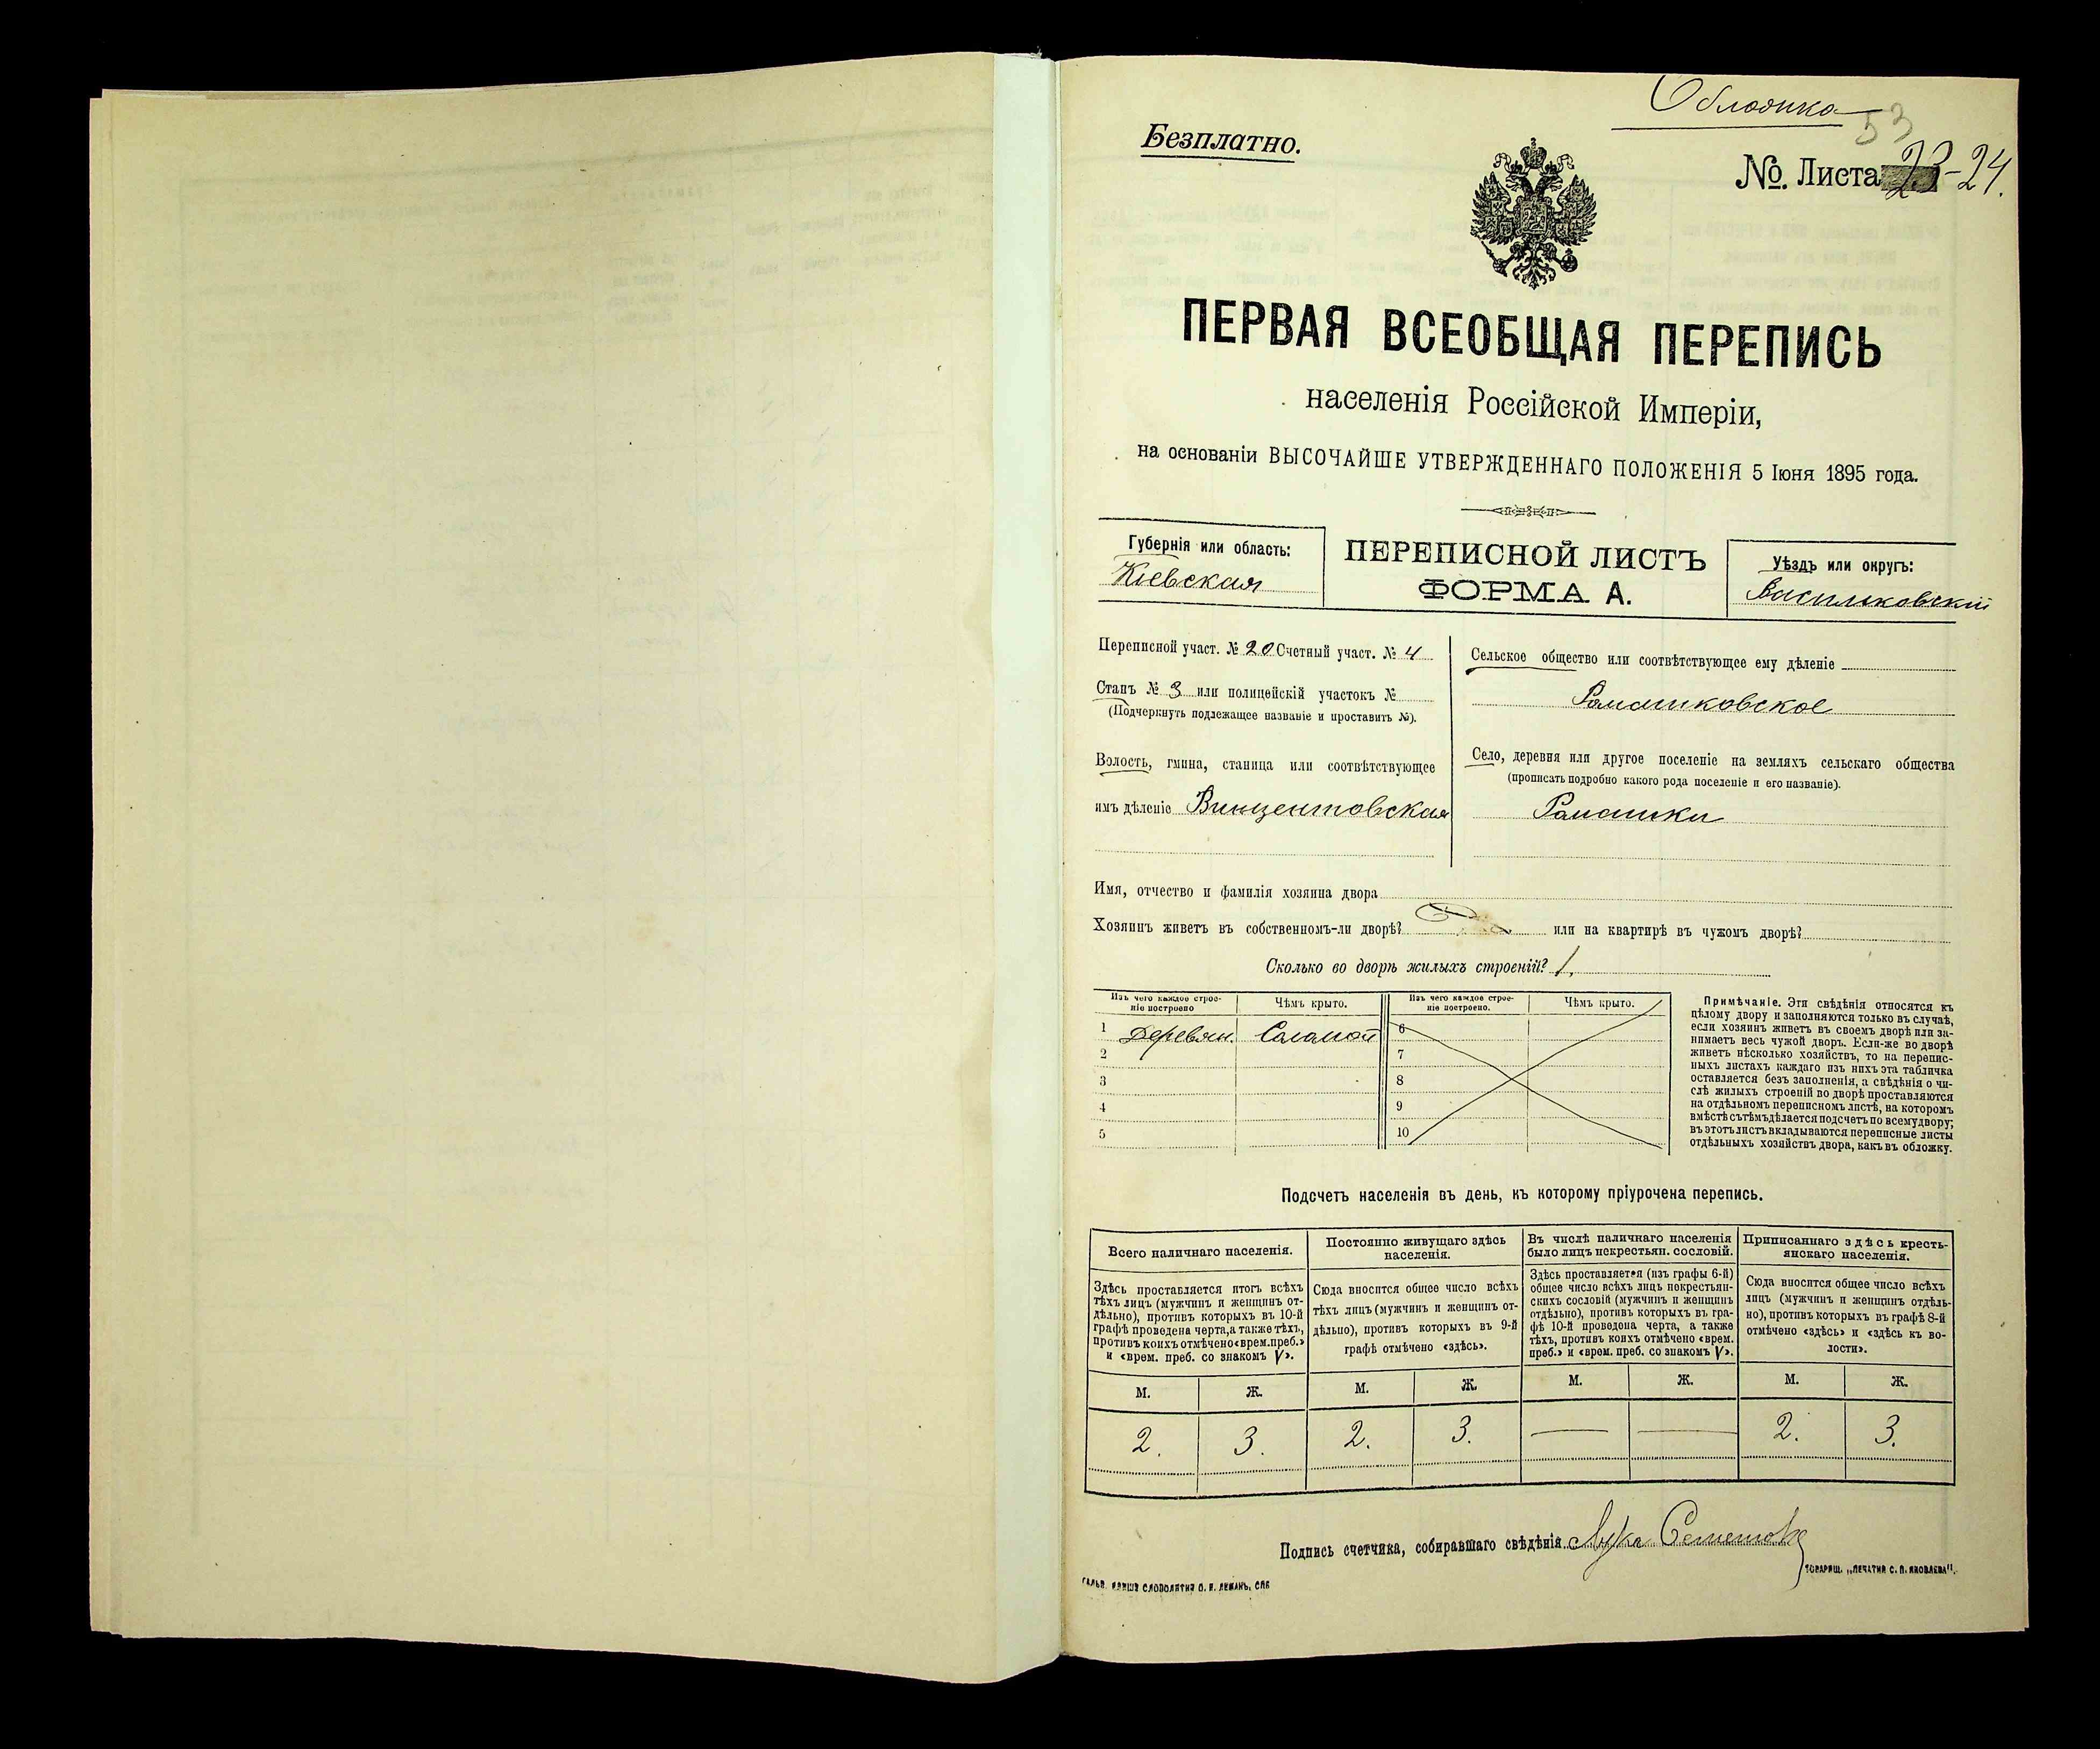 Обложка
53
Безплатно.
№. Листа 23-24.
ПЕРВАЯ ВСЕОБЩАЯ ПЕРЕПИСЬ
населенія Россійской Имперіи,
на основаніи ВЫСОЧАЙШЕ УТВЕРЖДЕННАГО ПОЛОЖЕНІЯ 5 Іюня 1895 года.
Губернія или область:
Кіевская
ПЕРЕПИСНОЙ ЛИСТЪ
ФОРМА А.
Уѣздъ или округъ:
Васильковскій
Переписной участ. № 20 Счетный участ. № 4
Станъ № 3 или полицейскій участокъ №
(Подчеркнуть подлежащее названіе и проставить №).
Волость, гмина, станица или соотвѣтствующее
имъ дѣленіе Винцентовская
Сельское общество или соотвѣтствующее ему дѣленіе
Ромашковское
Село, деревня или другое поселеніе на земляхъ сельскаго общества
(прописать подробно какого рода поселеніе и его названіе).
Ромашки
Имя, отчество и фамилія хозяина двора
Хозяинъ живетъ въ собственномъ-ли дворѣ? или на квартирѣ въ чужомъ дворѣ?
Сколько во дворѣ жилыхъ строеній? 1.
Изъ чего каждое строе-
ніе построено
Чѣмъ крыто.
Изъ чего каждое строе-
ніе построено.
Чѣмъ крыто.
1 Деревян. Соломой 6
2 7
3 8
4 9
5 10
Примѣчаніе. Эти свѣдѣнія относятся къ
цѣлому двору и заполняются только въ случаѣ,
если хозяинъ живетъ въ своемъ дворѣ или за-
нимаетъ весь чужой дворъ. Если-же во дворѣ
живетъ нѣсколько хозяйствъ, то на перепис-
ныхъ листахъ каждаго изъ нихъ эта табличка
оставляется безъ заполненія, а свѣдѣнія о чи-
слѣ жилыхъ строеній во дворѣ проставляются
на отдѣльномъ переписномъ листѣ, на которомъ
вмѣстѣ съ тѣмъ дѣлается подсчетъ по всему двору;
въ этотъ листъ вкладываются переписные листы
отдѣльныхъ хозяйствъ двора, какъ въ обложку.
Подсчетъ населенія въ день, къ которому пріурочена перепись.
Всего наличнаго населенія.
Здѣсь проставляется итогъ всѣхъ
тѣхъ лицъ (мужчинъ и женщинъ от-
дѣльно), противъ которыхъ въ 10-й
графѣ проведена черта, а также тѣхъ,
противъ коихъ отмѣчено «врем. преб.»
и «врем. преб. со знакомъ V».
Постоянно живущаго здѣсь
населенія.
Сюда вносится общее число всѣхъ
тѣхъ лицъ (мужчинъ и женщинъ от-
дѣльно), противъ которыхъ въ 9-й
графѣ отмѣчено «здѣсь».
Въ числѣ наличнаго населенія
было лицъ некрестьян. сословій.
Здѣсь проставляется (изъ графы 6-й)
общее число всѣхъ лицъ некрестьян-
скихъ сословій (мужчинъ и женщинъ
отдѣльно), противъ которыхъ въ гра-
фѣ 10-й проведена черта, а также
тѣхъ, противъ коихъ отмѣчено «врем.
преб.» и «врем. преб. со знакомъ V».
Приписаннаго здѣсь кресть-
янскаго населенія.
Сюда вносится общее число всѣхъ
лицъ (мужчинъ и женщинъ отдѣль-
но), противъ которыхъ въ графѣ 8-й
отмѣчено «здѣсь» и «здѣсь къ во-
лости».
М. Ж. М. Ж. М. Ж. М. Ж.
2. 3. 2. 3. — — 2. 3.
Подпись счетчика, собиравшаго свѣдѣнія Лука
СЛОВОЛИТНЯ О. И. ЛЕМАНЪ, СПБ
ТОВАРИЩ. „ПЕЧАТНЯ С. П. ЯКОВЛЕВА".